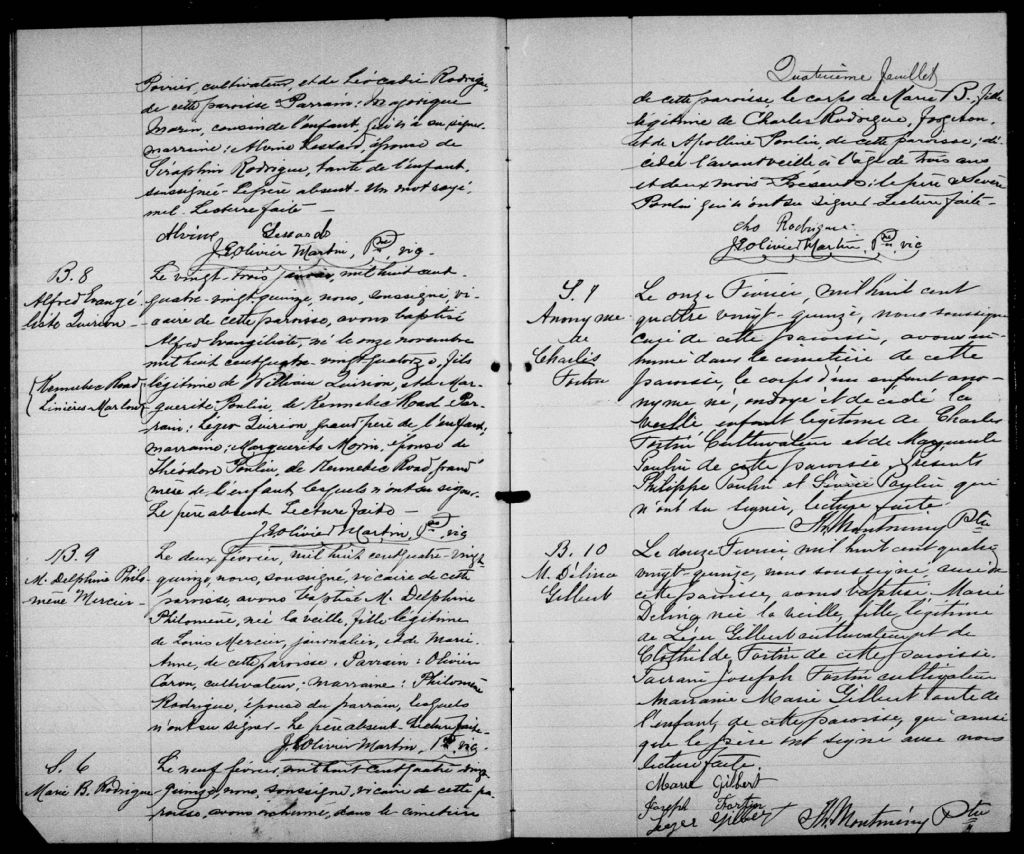 Poirier, cultivateur, et de Léocadie Rodrigue,
de cette paroisse. Parrain: Majorique
Morin, cousin de l'enfant, qui n'a su signer
marraine: Alvine Lessard, épouse de
Séraphin Rodrigue, tante de l'enfant,
soussignée. Le père absent. Un mot rayé,
nul. Lecture faite —
Alvine Lessard
J.E. Olivier Martin, Ptre, vic.
B. 8
Alfred Evangé
liste Quirion —
(Kennebec Road
Linières-Marlow)
Le vingt-trois janvier, mil huit cent
quatre-vingt quinze, nous, soussigné, vi-
caire de cette paroisse, avons baptisé
Alfred Evangéliste, né le onze novembre
mil huit cent quatre-vingt quatorze, fils
légitime de William Quirion, et de Mar-
guerite Poulin, de Kennebec Road. Par-
rain: Léger Quirion, grand père de l'enfant,
marraine: Marguerite Morin, épouse de
Théodore Poulin, de Kennebec Road, grand
mère de l'enfant, lesquels n'ont su signer.
Le père absent Lecture faite —
J.E. Olivier Martin, Ptre, vic
B. 9
M. Delphine Philo-
mène Mercier —
Le deux février, mil huit cent quatre-vingt
quinze, nous, soussigné, vicaire de cette
paroisse, avons baptisé M. Delphine
Philomène, née la veille, fille légitime
de Louis Mercier, journalier, et de Marie
Anne, de cette paroisse. Parrain: Olivier
Caron, cultivateur; marraine: Philomène
Rodrigue, épouse du parrain, lesquels
n'ont su signer. Le père absent. Lecture faite —
J.E. Olivier Martin, Ptre, vic.
S. 6
Marie B. Rodrigue
Le neuf février, mil huit cent quatre-vingt
quinze, nous, soussigné, vicaire de cette pa-
roisse, avons inhumé, dans le cimetière
Quatrième feuillet
de cette paroisse, le corps de Marie B., fille
légitime de Charles Rodrigue, forgeron,
et de Apolline Poulin, de cette paroisse; dé-
cédée l'avant veille à l'age de trois ans
et deux mois Présents: le père & Sévère
Poulin qui n'ont su signer Lecture faite —
Chs Rodrigue
J.E. Olivier Martin, Ptre, vic
S. 7
Anonyme
de
Charles
Fortin
Le onze Février, mil huit cent
quatre vingt-quinze, nous soussigné
curé de cette paroisse, avons in-
humé dans le cimetière de cette
paroisse, le corps d'un enfant ano-
nyme né, ondoyé et décédé la
veille, enfant légitime de Charles
Fortin Cultivateur et de Marguerite
Poulin de cette paroisse. Présents
Philippe Poulin et Poulin qui
n'ont su signer, lecture faite
Th. Montminy Ptre
B. 10
M. Délina
Gilbert
Le douze Février mil huit cent quatre
vingt-quinze, nous soussigné, curé de
cette paroisse, avons baptisé Marie
Délina née la veille, fille légitime
de Léger Gilbert cultivateur et de
Clothilde Fortin de cette paroisse.
Parrain Joseph Fortin cultivateur
Marraine Marie Gilbert tante de
l'enfant, de cette paroisse, qui ainsi
que le père ont signé avec nous
lecture faite.
Marie Gilbert
Joseph Fortin
Leger Gilbert Th. Montminy Ptre